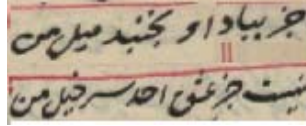 جز بیاد او نجنبد میل من
نیست جز عشق احد سرخیل من